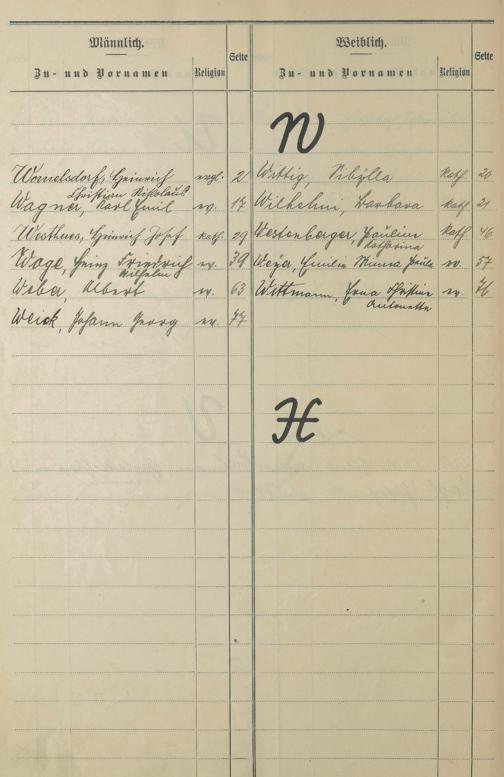 Männlich. Weiblich.
Zu- und Vornamen Religion Seite Zu- und Vornamen Religion Seite
W
Womelsdorf, Heinrich evgl. 2 Wittig, Sibÿlla kath 20
Christian Nikolaus
Wagner, Karl Emil ev. 17 Wilhelmi, Barbara kath 21
Westhues, Heinrich Josef kath. 29 Westenberger, Pauline kath 46
Katharina
Woge, Heinz Friedrich ev. 39 Weÿer, Emilie Minna Paula ev. 57
Wilhelm
Weber, Albert ev. 63 Wittmann, Erna Christine ev. 76
Antonette
Weick, Johann Georg ev. 77